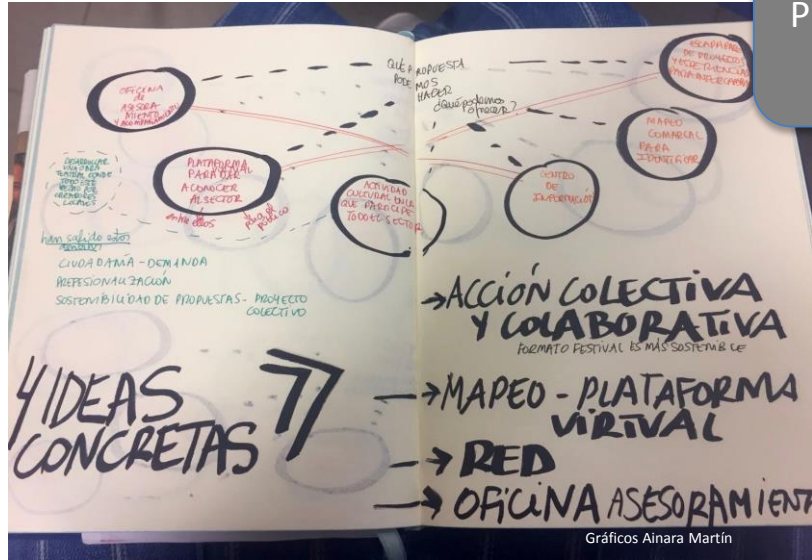 P
OFICINA
de
ASESORA
MIENTO
Y ACOMPAÑAMIENTO
QUÉ PROPUESTA
PODEMOS
HACER
¿Qué podemos
ofrecer?
ESCAPARATE
DE PROYECTOS
Y
PARA INTERCAMBIO
MAPEO
COMARCAL
PARA
IDENTIFICAR
DESARROLLAR
UNA OBRA
TEATRAL DONDE
TODO ESTÉ
HECHO POR
CREADORES
LOCALES
PLATAFORMA
PARA DAR
A CONOCER
AL SECTOR
entre ellos
para el
público
ACTIVIDAD
CULTURAL EN LA
QUE PARTICIPE
TODO EL SECTOR
CENTRO
DE
INFORMACIÓN
han salido estos
CIUDADANÍA - DEMANDA
PROFESIONALIZACIÓN
SOSTENIBILIDAD DE PROPUESTAS - PROYECTO
COLECTIVO
4 IDEAS
CONCRETAS
→ACCIÓN COLECTIVA
Y COLABORATIVA
FORMATO FESTIVAL ES MÁS SOSTENIBLE
→MAPEO - PLATAFORMA
VIRTUAL
→ RED
→ OFICINA ASESORAMIENT
Gráficos Ainara Martín